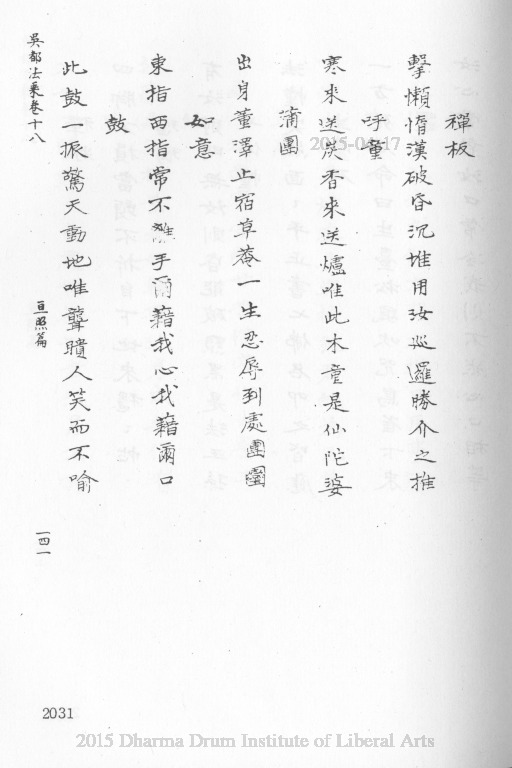 禪板
擊懶惰漢破昏沉堆用汝巡邏勝介之推
呼童
寒來送炭香來送爐唯此木童是仙陀婆
蒲團
出身董澤止宿草菴一生忍辱到處團圝
如意
東指西指常不離手爾藉我心我藉爾口
鼓
此鼓一振驚天動地唯聾瞶人笑而不喻
吳都法乘卷十八
亘照篇
一四一
2031
2015-04-17
2015 Dharma Drum Institute of Liberal Arts